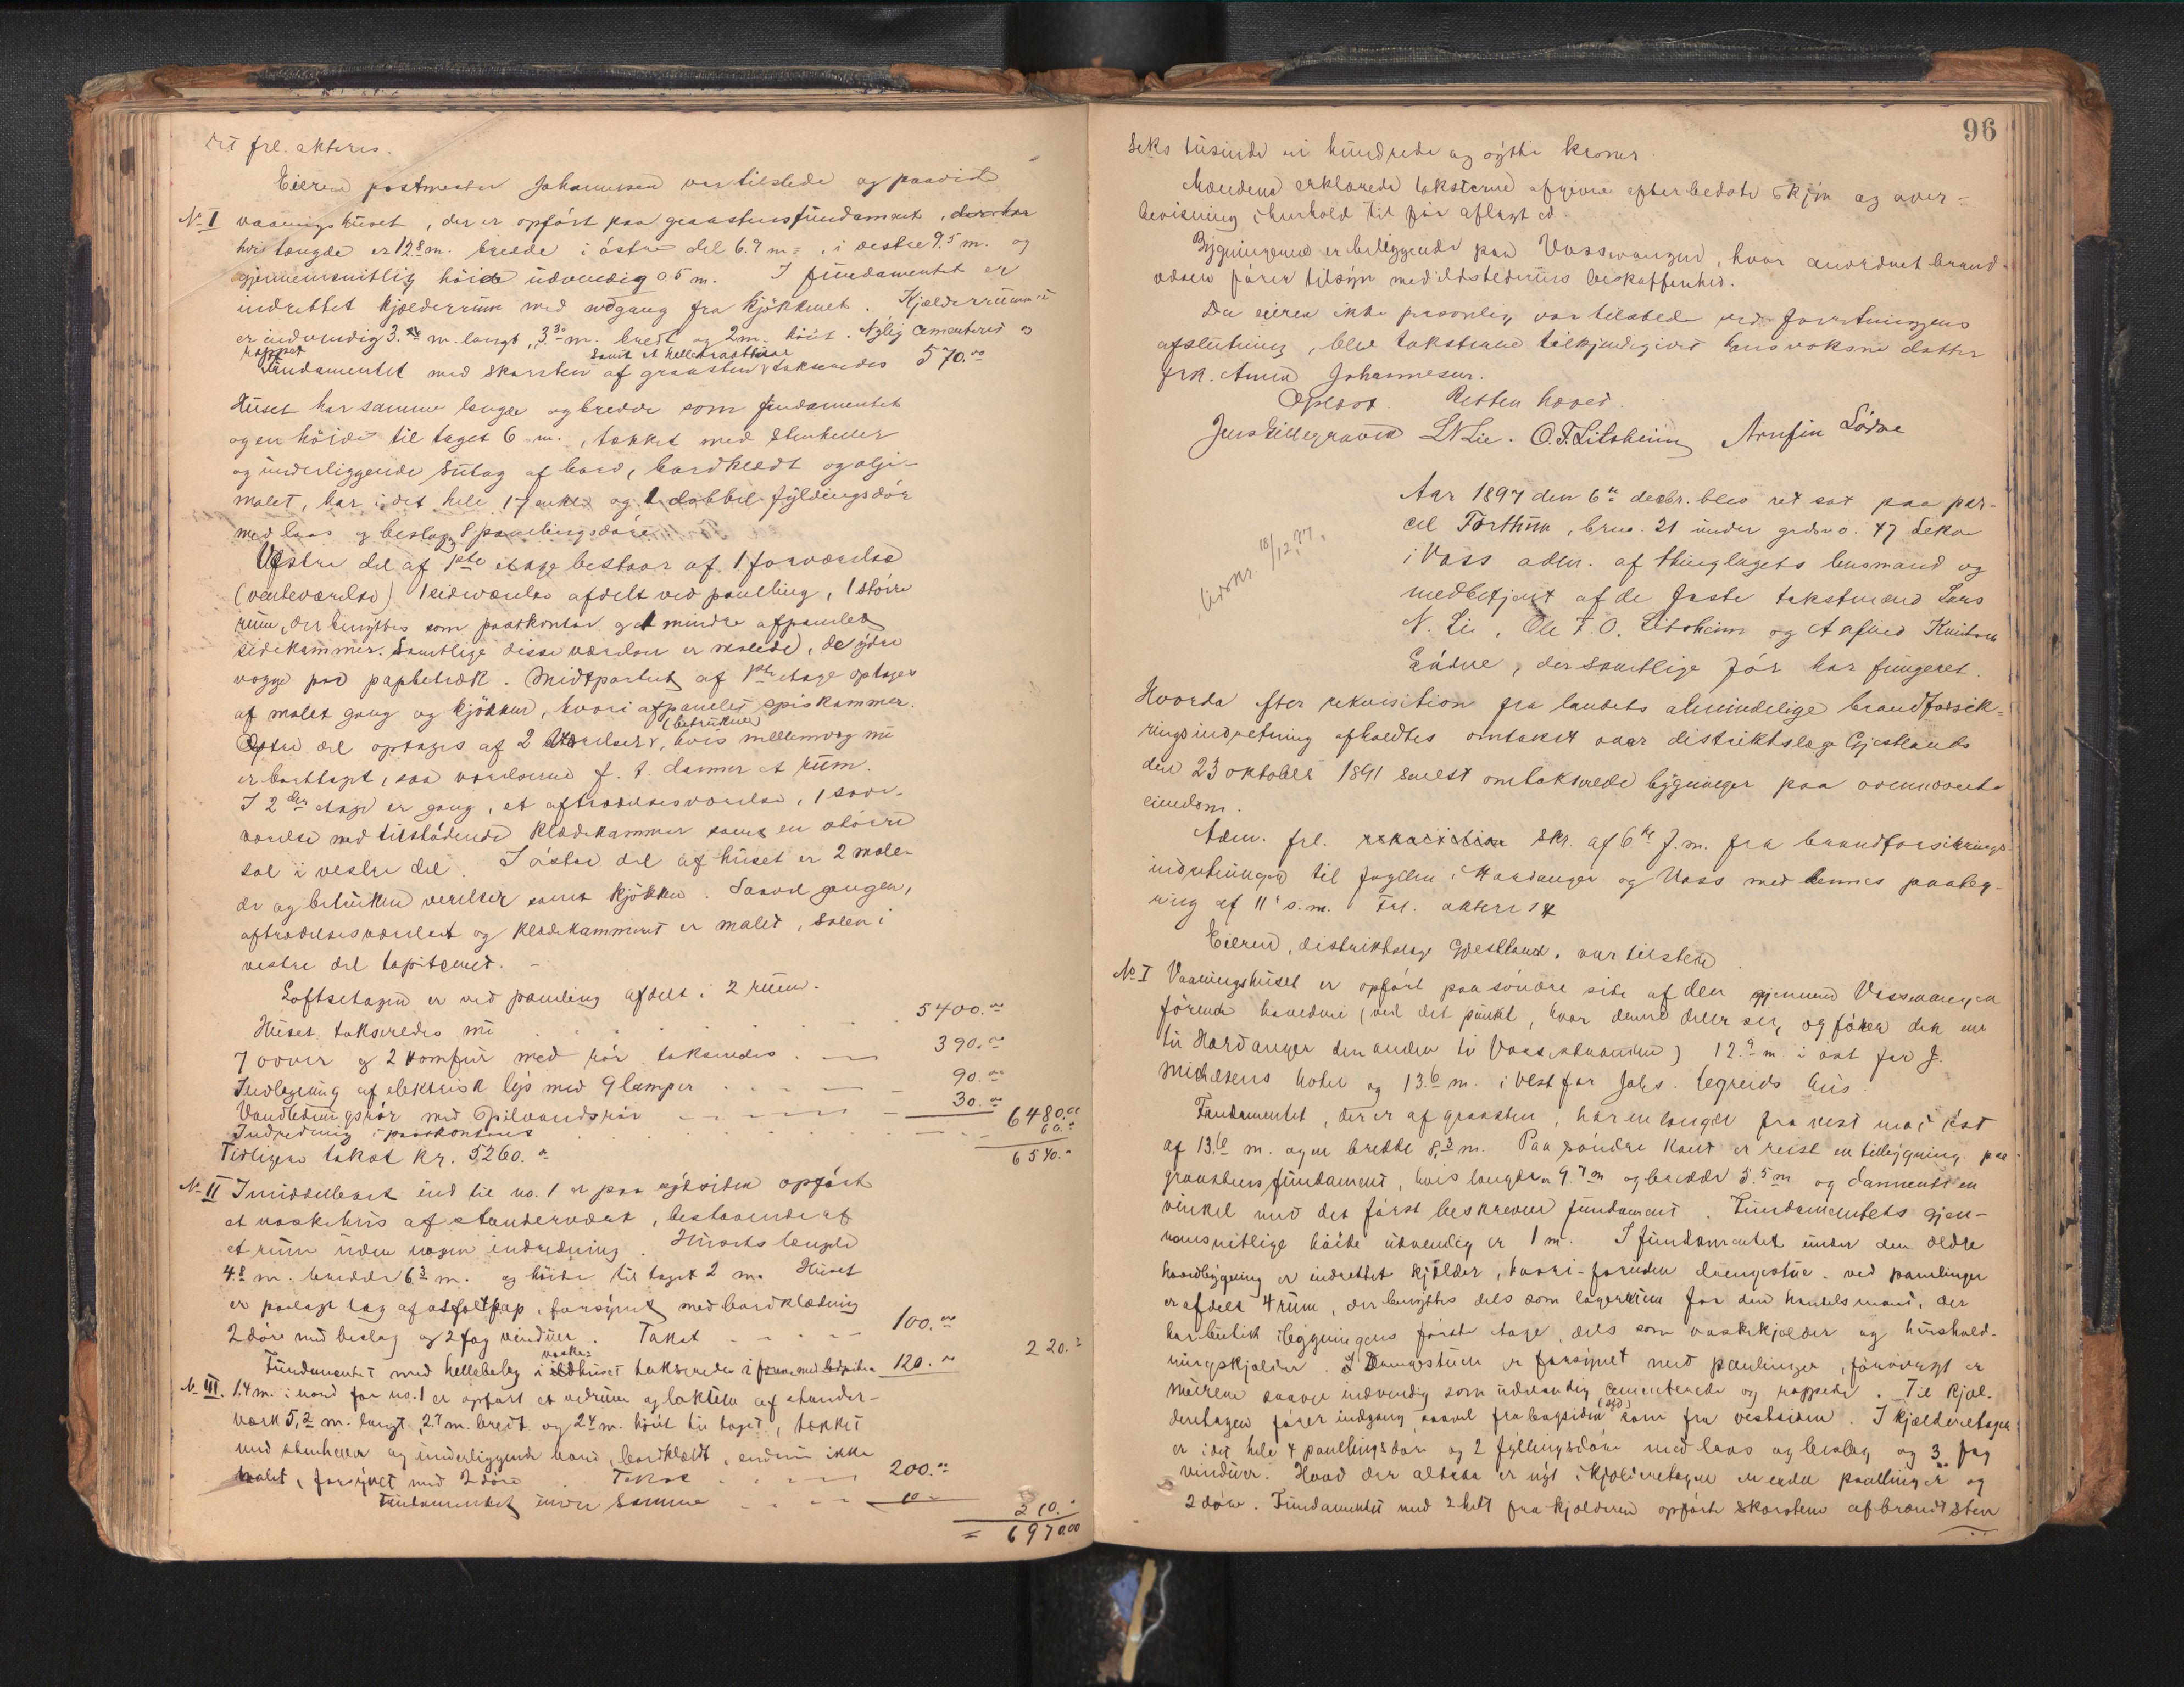 Det frl. akteres.
Eieren postmester Johannesen var tilstede og paaviste
No I vaaningshuset, der er opført paa graastensfundament, der har
hvis længde er 12.8 m. bredde i østre del 6.9 m. , i vestre 9.5 m. og
gjennemsnitlig høide udvendig 0.5 m. I fundamentet er
indrettet kjælderrum med nedgang fra kjøkkenet. Kjælderrummet
er indvendig 3. m. langt, 3.30 m. bredt og 2 m. høit. Nylig cementeret og
rappet
samt et helle
Fundamentet med skorsten af graasten takseredes 570.00
Huset har samme længde og bredde som fundamentet
og en høide til taget 6 m. , tækket med stenheller
og underliggende sutag af bord, bordklædt og olje-
malet, har i det hele 17 enkle og 1 dobbel fyldingsdør
med laas og beslag, 8 panelingsdøre
Vestre del af 1ste etage bestaar af 1 forværelse
(venteværelse) 1 sideværelse afdelt ved paneling, 1 større
rum, der benyttes som postkontor og 1 mindre afpanelet
sidekammer. Samtlige disse værelser er malede, de ydre
vægge paa papbetræk. Midtpartiet af 1ste etage optages
af malet gang og kjøkken, hvori afpanelet spiskammer.
(betrukne)
Østre del optages af 2 værelser, hvis mellemvæg nu
er borttaget, saa værelserne f. t. danner et rum.
I 2den etage er gang, et aftrædelsesværelse, 1 sove-
værelse med tilstødende klædekammer samt en større
sal i vestre del. I østre del af huset er 2 male-
de og betrukne værelser samt kjøkken. Saavel gangen,
aftrædelsesværelset og klædekammeret er malet, salen i
vestre del tapitseret. -
Loftsetagen er ved paneling afdelt i 2 rum.
Huset takseredes nu 5400.00
7 ovner og 2 komfur med rør takseredes 390.00
Indlægning af elektrisk lys med 9 lamper 90.00
Vandledningsrør med spilvandsrør 30.00 6480.00
Indredning i postkontoret 60.00
Tidligere takst kr. 5260.00 6540.00
No II I middelbart ind til no. 1 er paa sydsiden opført
et vaskehus af stenderværk, bestaaende af
et rum uden nogen indredning. Husets længde
4.8 m. bredde 6.3 m. og høide til taget 2 m. Huset
er paalagt tag af asfaltpap, forsynet med bordklædning
2 døre med beslag og 2 fag vinduer. Takst 100.00
vaske-
Fundamentet med hellebelæg i ildhuset takseredes 120.00 220.00
No III. 1.4 m. i nord for no. 1 er opført et vedrum og lokum af stender-
værk 5,2 m. langt, 2.7 m. bredt og 2.4 m. høit til taget, tækket
med stenheller og underliggende bord, bordklædt, endnu ikke
malet, forsynet med 2 døre. Takst 200.00
Fundamentet under samme 10.00 210.00
= 6970.00
96
Seks tusinde ni hundrede og sytti kroner.
Mændene erklærede taksterne afgivne efter bedste skjøn og over-
bevisning i henhold til før aflagt ed.
Bygningerne er beliggende paa Vossevangen, hvor anordnet brand-
væsen fører tilsyn med ildstedernes beskaffenhed.
Da eieren ikke personlig var tilstede ved forretningens
afslutning, blev taksterne tilkjendegivet hans voksne datter
frk. Anna Johannesen.
Oplæst. Retten hævet.
Jens Lillegraven LNLie. O.F. Litsheim Arnfin Lødve
Aar 1897 den 6te decbr. blev ret sat paa par-
cel Forthun, brno. 21 under gndsno. 47 Lekve
i Voss adm. af thinglagets lensmand og
medbetjent af de faste takstmænd Lars
N. Lie, Ole F. O. Litsheim og Arnfind
Lødve, der samtlige før har fungeret.
18/12.97.
Hvorda efter rekvisition fra landets almindelige brandforsik-
ringsindretning afholdtes omtakst over distriktslæge Gjestlands
den 23 oktober 1891 senest omtakserede bygninger paa ovennævnte
eiendom.
Adm. frl. rekvisition skr. af 6te f. m. fra brandforsikrings-
indretningen til fogden i Hardanger og Voss med dennes paateg-
ning af 11te s. m. Frl. akteres
Eieren, distriktslæge Gjestland, var tilstede.
No I Vaaningshuset er opført paa søndre side af den gjennem Vossevangen
førende hovedvei (ved det punkt, hvor denne deler sig, og fører den ene
til Hardanger den anden til Vossestranden) 12.9 m. i øst for J.
Michelsens hotel og 13.6 m. i vest for Johs. Tegreids hus.
Fundamentet, der er af graasten, har en længde fra vest mod øst
af 13.6 m. og en bredde 8,3 m. Paa søndre kant er reist en tilbygning paa
graastensfundament, hvis længde er 9.7 m og bredde 5.5 m og dannende en
vinkel med det først beskrevne fundament. Fundamentets gjen-
nemsnitlige høide udvendig er 1 m. I fundamentet under den ældre
hovedbygning er indrettet kjælder, hvori - foruden drengestue - ved panelinger
er afdelt 4 rum, der benyttes dels som lagerrum for den handelsmand, der
har butik i bygningens første etage, dels som vaskekjælder og hushold-
ningskjælder. Drengestuen er forsynet med panelinger, forøvrigt er
murene saavel indvendig som udvendig cementerede og rappede. Til kjæl-
deretagen fører indgang saavel fra bagsiden (syd) som fra vestsiden. I kjælderetagen
er i det hele 4 panelingsdøre og 2 fyllingsdøre med laas og beslag og 3 fag
vinduer. Hvad der altsaa er nyt i kjælderetagen er endel panelinger og
2 døre. Fundamentet med 2 helt fra kjælderen opførte skorstene af brændt sten